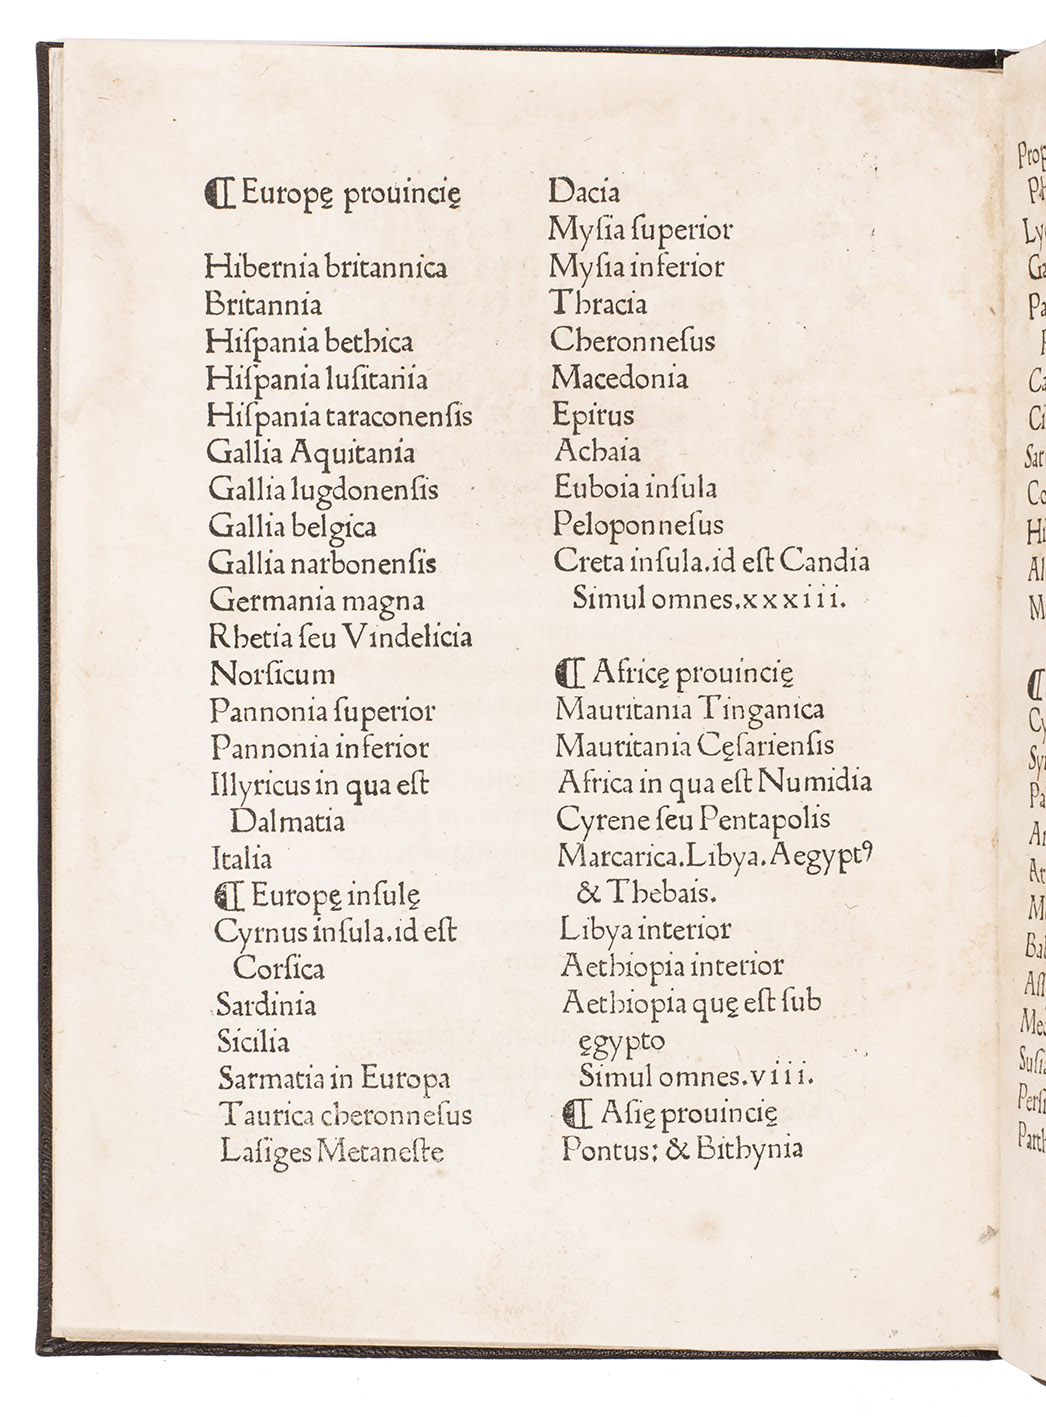 ¶ Europę prouincię
Hibernia britannica
Britannia
Hiſpania bethica
Hiſpania luſitania
Hiſpania taraconenſis
Gallia Aquitania
Gallia lugdonenſis
Gallia belgica
Gallia narbonenſis
Germania magna
Rhetia ſeu Vindelicia
Norſicum
Pannonia ſuperior
Pannonia inferior
Illyricus in qua eſt
Dalmatia
Italia
¶ Europę inſulę
Cyrnus inſula.id eſt
Corſica
Sardinia
Sicilia
Sarmatia in Europa
Taurica cheronneſus
Laſiges Metaneſte
Dacia
Myſia ſuperior
Myſia inferior
Thracia
Cheronneſus
Macedonia
Epirus
Achaia
Euboia inſula
Peloponneſus
Creta inſula.id eſt Candia
Simul omnes.xxxiii.
¶ Africę prouincię
Mauritania Tinganica
Mauritania Cęſarienſis
Africa in qua eſt Numidia
Cyrene ſeu Pentapolis
Marcarica.Libya.Aegyptꝰ
& Thebais.
Libya interior
Aethiopia interior
Aethiopia quę eſt ſub
ęgypto
Simul omnes.viii.
¶ Aſię prouincię
Pontus: & Bithynia